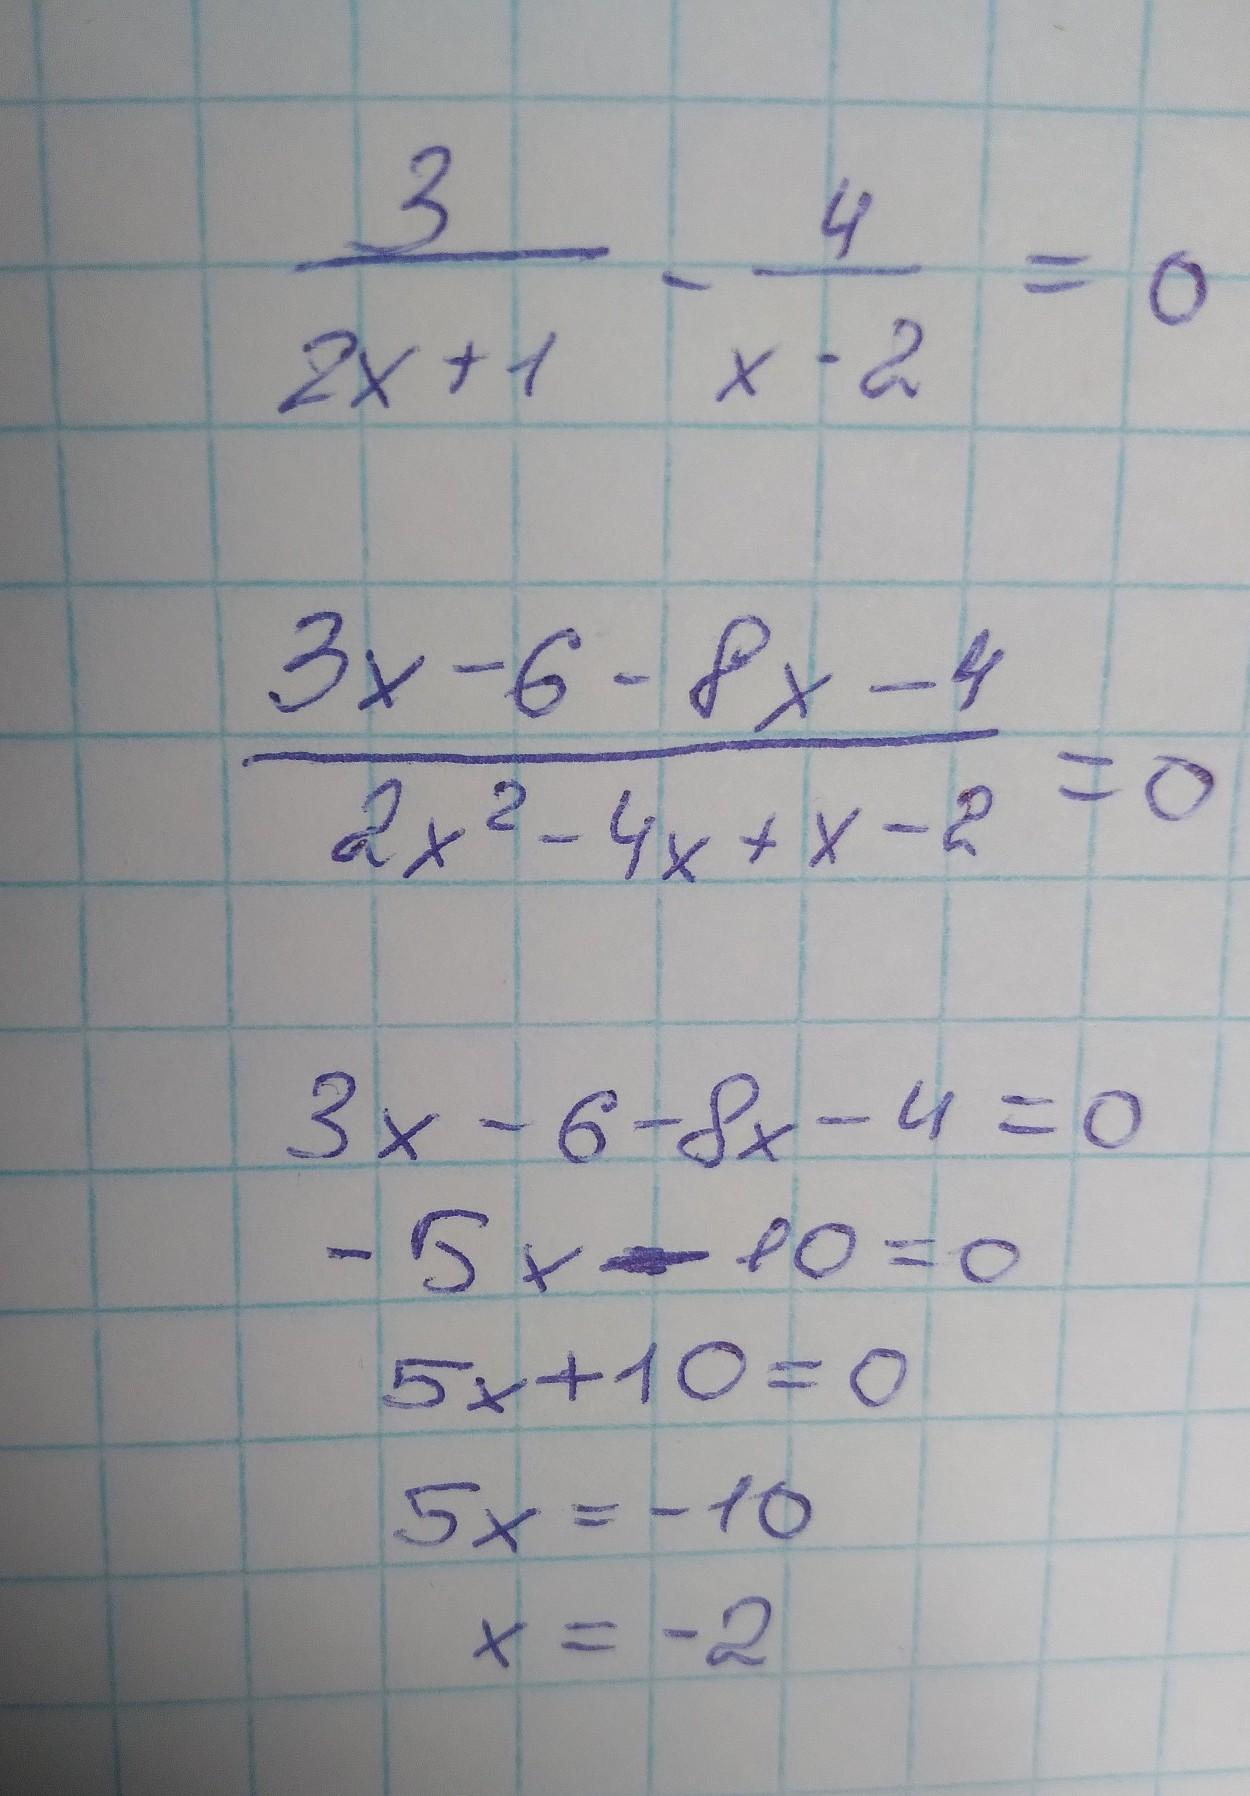 3/(2x+1) - 4/(x-2) = 0
(3x-6-8x-4)/(2x²-4x+x-2) = 0
3x-6-8x-4=0
-5x-10=0
5x+10=0
5x=-10
x=-2